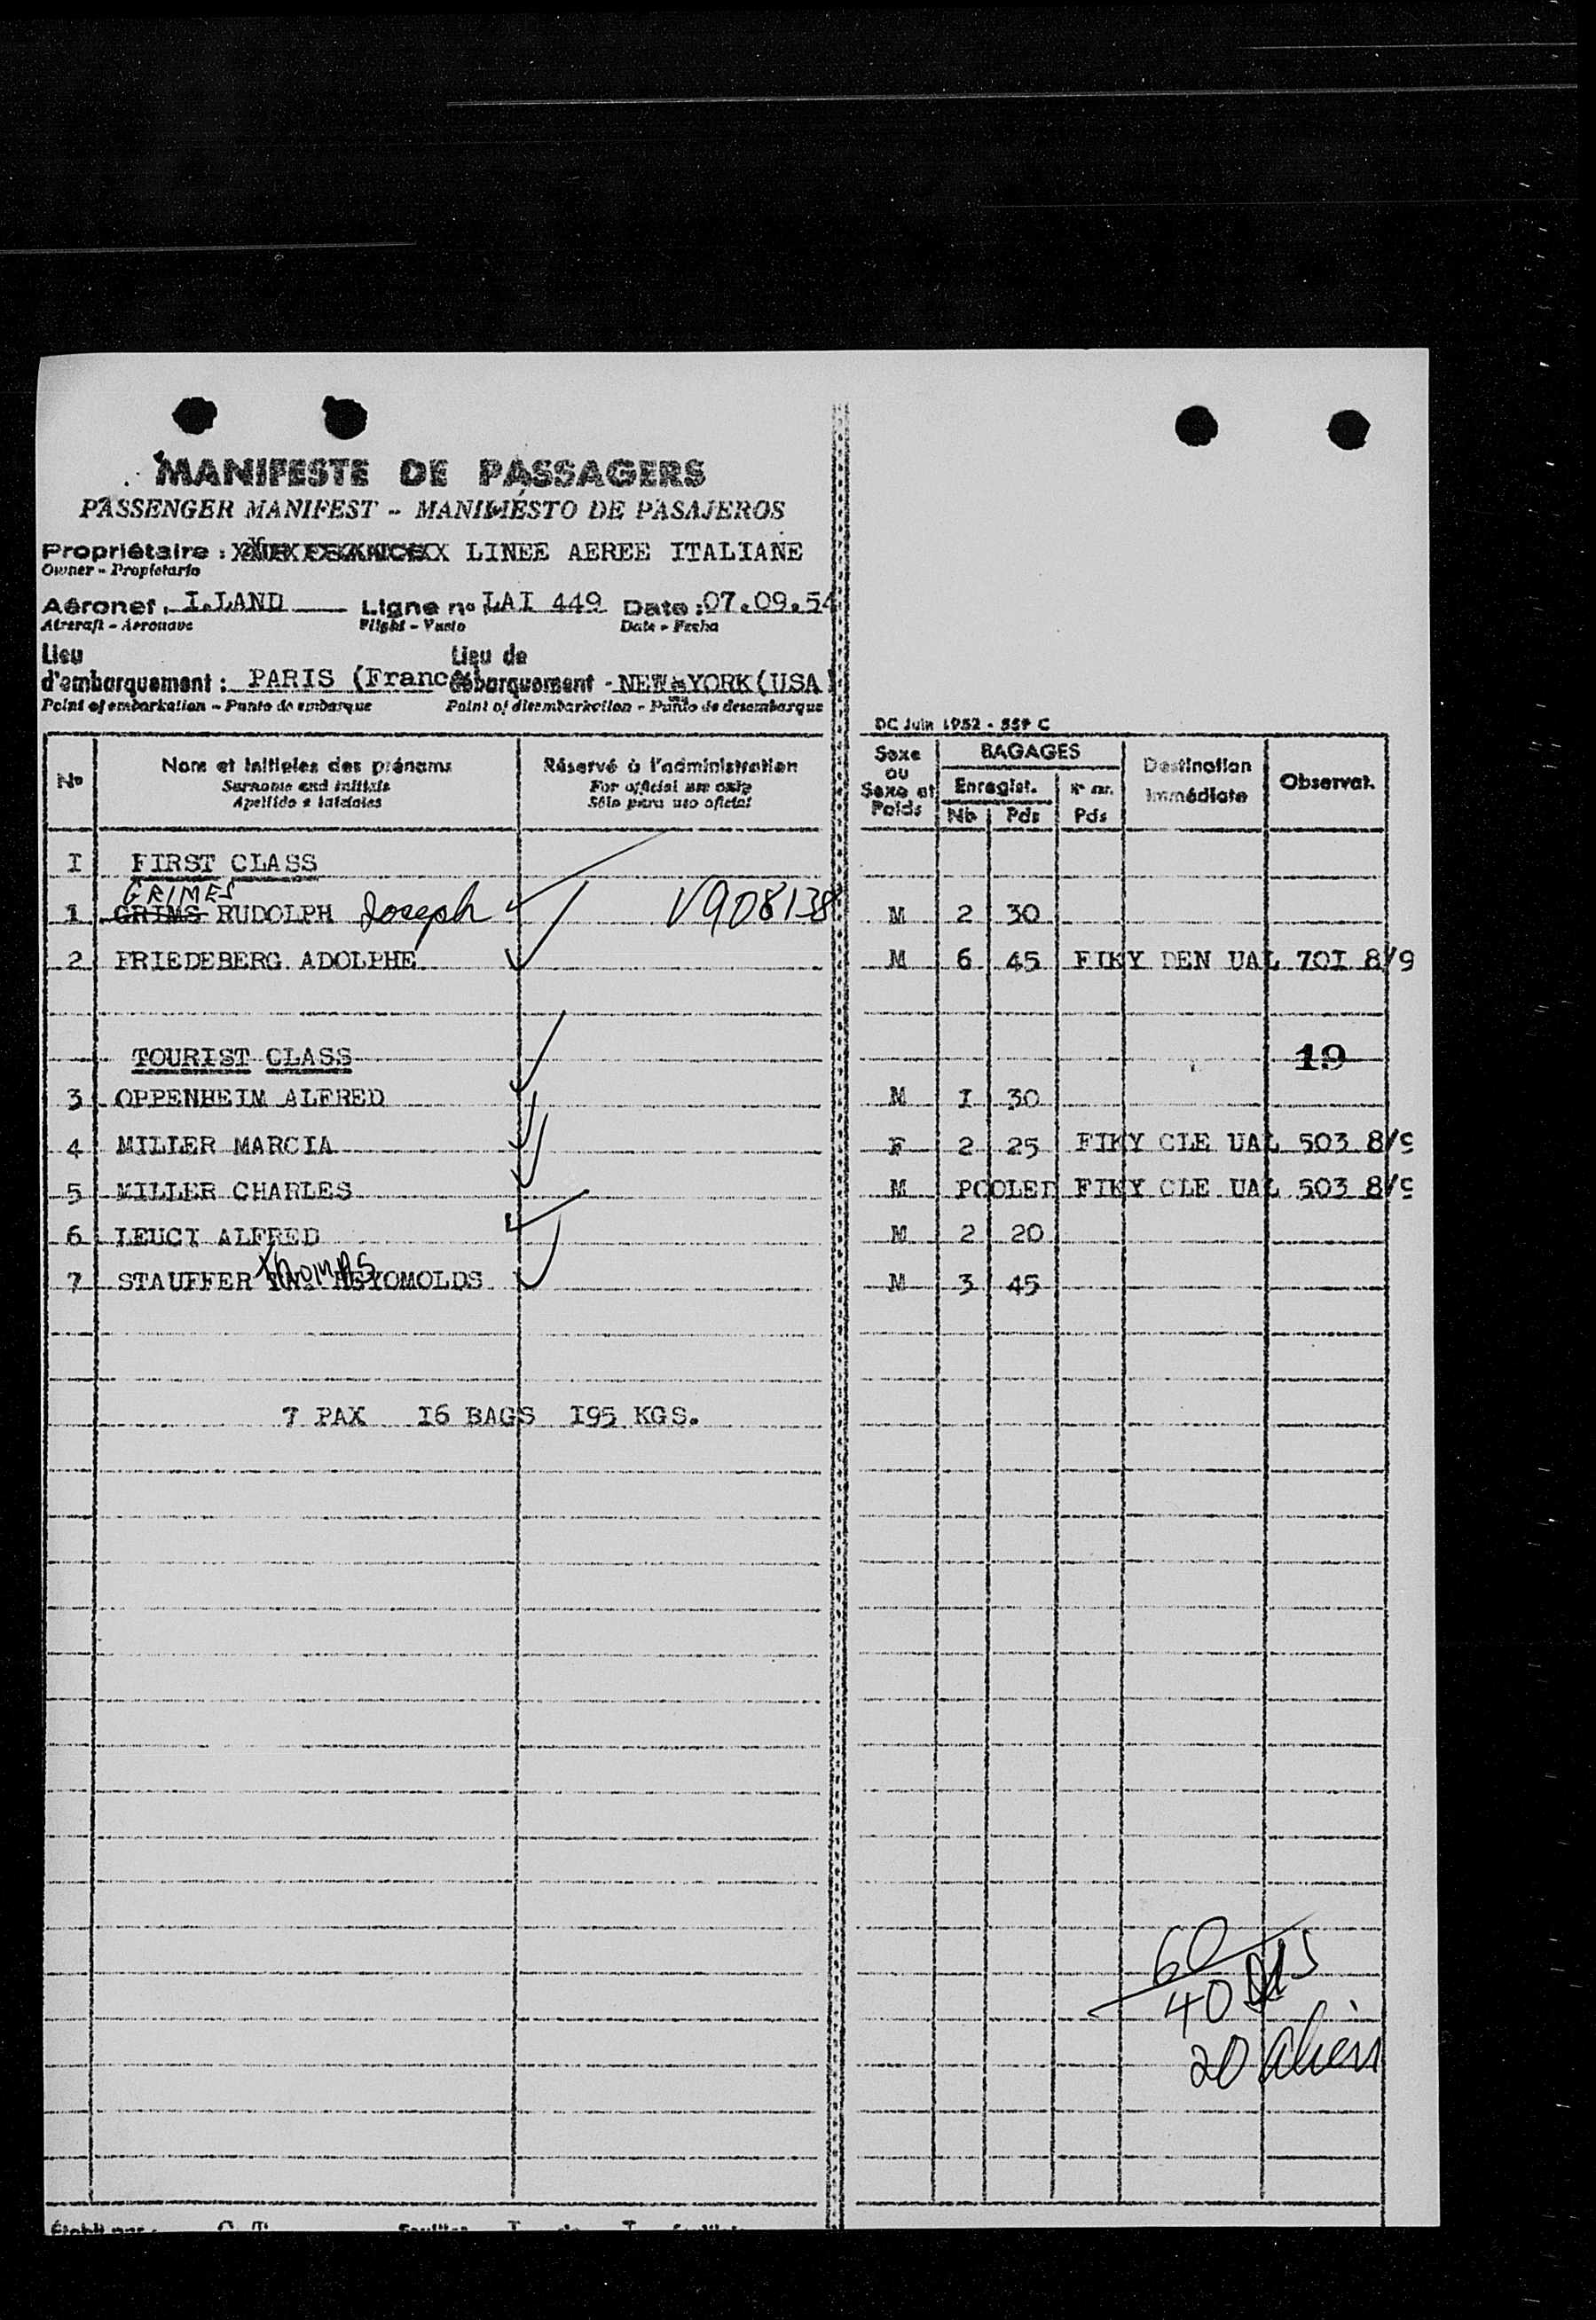 MANIFESTE DE PASSAGERS
PASSENGER MANIFEST - MANIFIESTO DE PASAJEROS
Propriétaire : LINEE AEREE ITALIANE
Owner - Propietario
Aéronef : I.LAND Ligne no LAI 449 Date : 07.09.54
Aircraft - Aeronave Flight - Vuelo Date - Fecha
Lieu Lieu de
d'embarquement : PARIS (France) débarquement - NEW-YORK (USA)
Point of embarkation - Punto de embarque Point of disembarkation - Punto de desembarque
DC Juin 1952 - 557 C
No Nom et initiales des prénoms Réservé à l'administration Sexe ou Sexe et Poids BAGAGES Destination immédiate Observat.
Surname and initials For official use only Enregist. Nr enr.
Apellido e iniciales Sólo para uso oficial Nb Pds Pds
I FIRST CLASS
GRIMES
1 GRIMS RUDOLPH Joseph V908138 M 2 30
2 FRIEDEBERG ADOLPHE M 6 45 FIKY DEN UAL 70I 8/9
TOURIST CLASS 19
3 OPPENHEIM ALFRED M I 30
4 MILLER MARCIA F 2 25 FIKY CLE UAL 503 8/9
5 MILLER CHARLES M POOLED FIKY CLE UAL 503 8/9
6 LEUCI ALFRED M 2 20
THOMAS
7 STAUFFER REYOMOLDS M 3 45
7 PAX I6 BAGS I95 KGS.
60
40
20 Alien